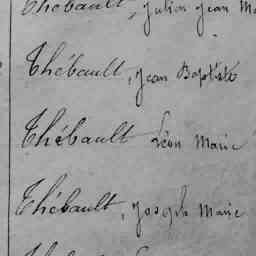 Thébault, Julien Jean Ma
Thébault, Jean Baptiste
Thébault Léon Marie
Thébault, Joseph Marie